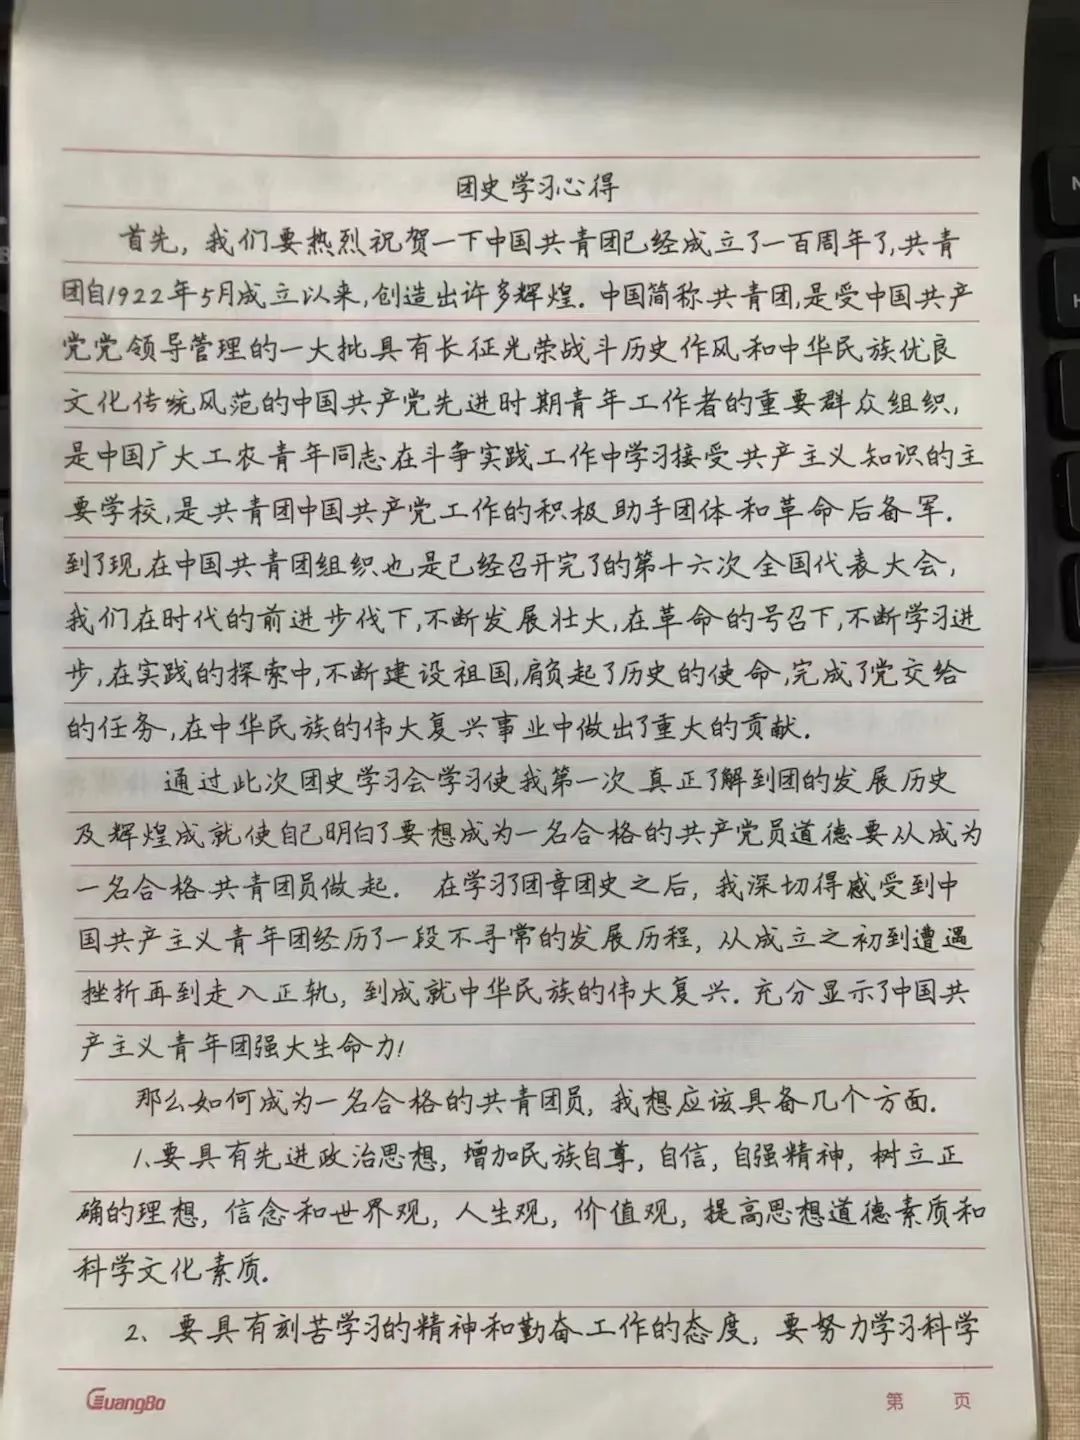 团史学习心得
首先，我们要热烈祝贺一下中国共青团已经成立了一百周年了,共青
团自1922年5月成立以来,创造出许多辉煌.中国简称共青团,是受中国共产
党党领导管理的一大批具有长征光荣战斗历史作风和中华民族优良
文化传统风范的中国共产党先进时期青年工作者的重要群众组织,
是中国广大工农青年同志在斗争实践工作中学习接受共产主义知识的主
要学校,是共青团中国共产党工作的积极助手团体和革命后备军.
到了现在中国共青团组织也是已经召开完了的第十六次全国代表大会,
我们在时代的前进步伐下,不断发展壮大,在革命的号召下,不断学习进
步,在实践的探索中,不断建设祖国,肩负起了历史的使命,完成了党交给
的任务,在中华民族的伟大复兴事业中做出了重大的贡献.
通过此次团史学习会学习使我第一次真正了解到团的发展历史
及辉煌成就使自己明白了要想成为一名合格的共产党员道德要从成为
一名合格共青团员做起. 在学习了团章团史之后，我深切得感受到中
国共产主义青年团经历了一段不寻常的发展历程，从成立之初到遭遇
挫折再到走入正轨，到成就中华民族的伟大复兴.充分显示了中国共
产主义青年团强大生命力!
那么如何成为一名合格的共青团员，我想应该具备几个方面.
1、要具有先进政治思想，增加民族自尊，自信，自强精神，树立正
确的理想，信念和世界观，人生观，价值观，提高思想道德素质和
科学文化素质.
2、要具有刻苦学习的精神和勤奋工作的态度，要努力学习科学
GuangBo
第 页